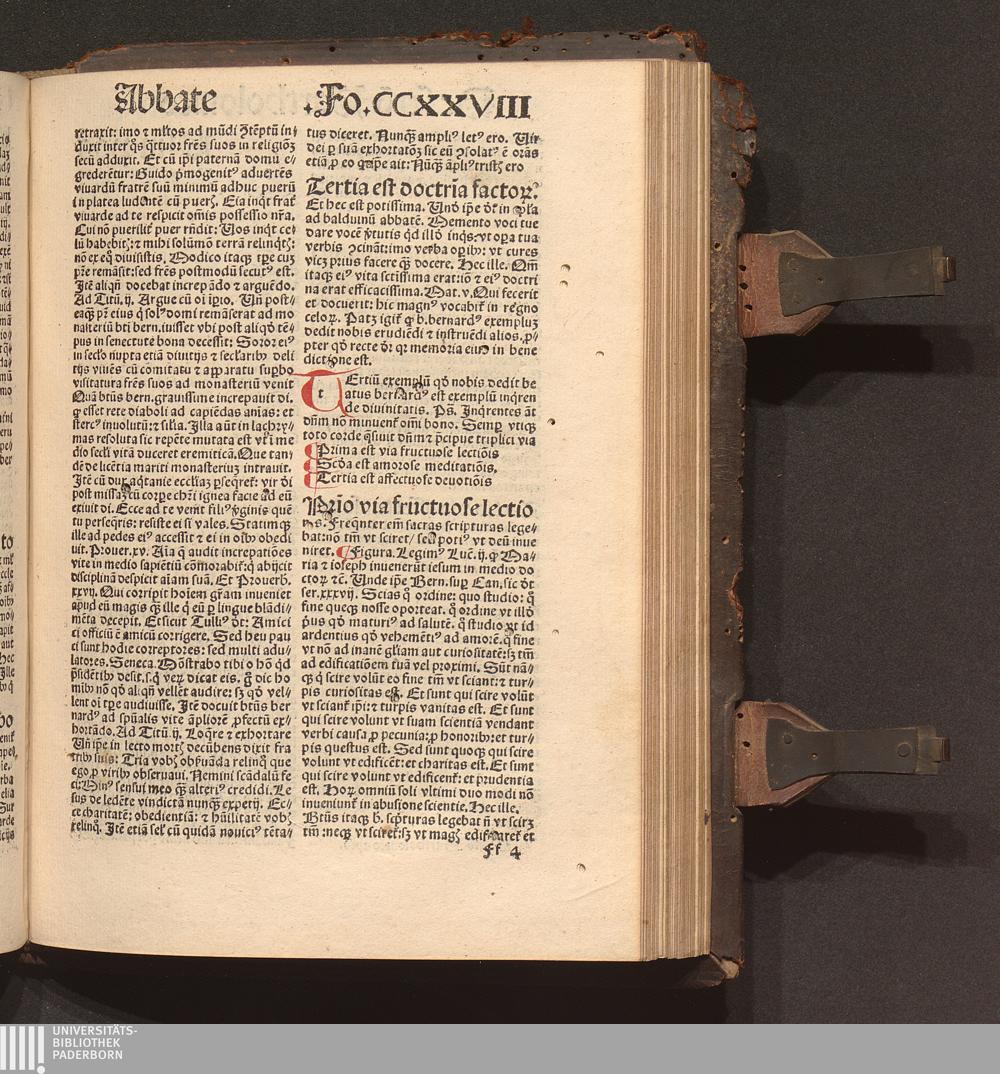 Abbate
.Fo.CCXXVIII
retraxit: imo ⁊ ml̃tos ad mũdi ꝯtẽptũ in
duxit inter q̃s q̃ttuor fr̃es suos in religiõꝫ
secũ adduxit. Et cũ ip̃i paternã domũ e⸗
grederẽtur: Guido p̃mogenitꝰ aduertẽs
viuardũ fratrẽ suũ minimũ adhuc puerũ
in platea ludẽtẽ cũ pueris. Eia inqt frat̃
viuarde ad te respicit om̃is possessio nr̃a.
Cui nõ puerilit̃ puer rñdit: Vos inqt ce
lũ habebitis: ⁊ mihi solũmõ terrã relinqtis:
nõ ex eq̃ diuisistis. Modico itaqꝫ tp̃e cuꝫ
pr̃e remãsit: sed fr̃es postmodũ secutꝰ est.
Itẽ aliqñ docebat increpãdo ⁊ arguẽdo.
Ad Titũ.ij. Argue cũ oĩ ip̃io. Vñ post⸗
eaqꝫ pr̃ eius q̃ solꝰ domi remãserat ad mo
nasteriũ bti bern. iuisset vbi post aliq̃d tẽ⸗
pus in senectute bona decessit: Soror eiꝰ
in sec̃lo nupta etiã diuitijs ⁊ sec̃larib⁹ deli
tijs viuẽs cũ comitatu ⁊ apparatu suꝑbo
visitatura fr̃es suos ad monasteriũ venit
Quã btũs bern. grauissime increpauit di.
ꝙ esset rete diaboli ad capiẽdas aĩas: et
stercꝰ inuolutũ: ⁊ sil̃ia. Illa aũt in lachry⸗
mas resoluta sic repẽte mutata est vt ĩ me
dio sec̃li vitã duceret eremiticã. Que tan⸗
dẽ de licẽtia mariti monasteriuꝫ intrauit.
Itẽ cũ dux aq̃tanie eccliaꝫ ꝑseqret̃: vir dĩ
post missaꝫ cũ corꝑe chr̃i ignea facie ad eũ
exiuit dĩ. Ecce ad te venit filiꝰ v̓ginis quẽ
tu perseq̃ris: resiste ei si vales. Statimqꝫ
ille ad pedes eiꝰ accessit ⁊ ei in oĩb⁹ obedi
uit. Prouer.xv. Aĩa q̃ audit increpatiões
vite in medio sapiẽtiũ cõmorabit̃: q̃ abijcit
disciplinã despicit aĩam suã. Et Prouerb.
xxvij. Qui corripit hoĩem gr̃am inueniet
apud eũ magis qꝫ ille q̃ eũ ꝑ lingue blãdi⸗
mẽta decepit. Et sicut Tulliꝰ dt̃: Amici
ci officiũ ẽ amicũ corrigere. Sed heu pau
ci sunt hodie correptores: sed multi adu⸗
latores. Seneca. Mõstrabo tibi o hõ qd̃
p̃sidẽtib⁹ desit. s. q̃ veꝝ dicat eis. g̃ dic ho
mib⁹ nõ q̃d aliqñ vellẽt audire: sꝫ q̃d vel⸗
lent oĩ tp̃e audiuisse. Itẽ docuit btũs ber
nardꝰ ad sp̃ualis vite ãpliorẽ ꝓfectũ ex⸗
hortãdo. Ad Titũ.ij. Loq̃re ⁊ exhortare
Vñ ip̃e in lecto mortis decũbens dixit fra
trib⁹ suis: Tria vobis obseruãda relinq̃ que
ego ꝓ virib⁹ obseruaui. Nemini scãdalũ fe
ci: Minꝰ sensui meo qꝫ alteriꝰ credidi. Le
sus de ledẽte vindictã nunqꝫ expetij. Ec⸗
ce charitatẽ: obedientiã: ⁊ hũilitatẽ vobis
relinq̃. Itẽ etiã sel̃ cũ quidã nouiciꝰ tẽta⸗
tus diceret. Nunqꝫ ampliꝰ letꝰ ero. Vir
dei ꝑ suã exhortatõꝫ sic eũ ꝯsolatꝰ ẽ orãs
etiã ꝓ eo qꝫ ip̃e ait: Nũqꝫ ãpliꝰ tristis ero
Tertia est doctrĩa factoꝝ.
Et hec est potissima. Vnd̃ ip̃e dt̃ in ep̃la
ad balduinũ abbatẽ. Memento voci tue
dare vocẽ v̓tutis qd̃ illd̃ inqs: vt oꝑa tua
verbis ꝯcinãt: imo verba oꝑib⁹: vt cures
vicꝫ prius facere qꝫ docere. Hec ille. Qm̃
itaqꝫ eiꝰ vita sctissima erat: iõ ⁊ eiꝰ doctri
na erat efficacissima. Mat.v. Qui fecerit
et docuerit: hic magnꝰ vocabit̃ in regno
celoꝝ. Patꝫ igit̃ ꝙ b. bernardꝰ exempluꝫ
dedit nobis erudiẽdi ⁊ instruẽdi alios. ꝓ⸗
pter qd̃ recte dr̃ qꝛ memoria eius in bene
dictiõne est.
t
Ertiũ exemplũ qd̃ nobis dedit be
atus bernardꝰ est exemplũ inq̃ren
de diuinitatis. Ps. Inq̃rentes ãt
dñm nõ minuent̃ om̃i bono. Semꝑ vticꝫ
toto corde q̃siuit dñm ⁊ p̃cipue triplici via
Prima est via fructuose lectiõis
Scd̃a est amorose meditatiõis,
Tertia est affectuose deuotiõis
Prĩo via fructuose lectio
nis. Freq̃nter em̃ sacras scripturas lege⸗
bat: nõ tm̃ vt sciret/ sed potiꝰ vt deũ inue
niret. Figura. Legimꝰ Luc̃.ij. ꝙ Ma⸗
ria ⁊ ioseph inuenerũt iesum in medio do
ctoꝝ ⁊c̃. Unde ip̃e Bern. suꝑ Can. sic dt̃
ser.xxxvij. Scias q̃ ordine: quo studio: q̃
fine queqꝫ nosse oporteat. q̃ ordine vt illd̃
p̃us qd̃ maturiꝰ ad salutẽ. q̃ studio vt id
ardentius qd̃ vehemẽtiꝰ ad amorẽ. q̃ fine
vt nõ ad inanẽ gl̃iam aut curiositatẽ: sꝫ tm̃
ad edificatiõem tuã vel proximi. Sũt nã⸗
qꝫ q̃ scire volũt eo fine tm̃ vt sciant: ⁊ tur⸗
pis curiositas est. Et sunt qui scire volũt
vt sciant̃ ip̃i: ⁊ turpis vanitas est. Et sunt
qui scire volunt vt suam scientiã vendant
verbi causa ꝓ pecunia: ꝓ honorib⁹: et tur⸗
pis questus est. Sed sunt quoqꝫ qui scire
volunt vt edificẽt: et charitas est. Et sunt
qui scire volunt vt edificent̃: et prudentia
est. Hoꝝ omniũ soli vltimi duo modi nõ
inueniunt̃ in abusione scientie. Hec ille.
Btũs itaqꝫ b. sc̃pturas legebat ñ vt sciret
tm̃: necqꝫ vt sciret̃: sꝫ vt magis edificaret̃ et
ff 4
UNIVERSITÄTS-
BIBLIOTHEK
PADERBORN